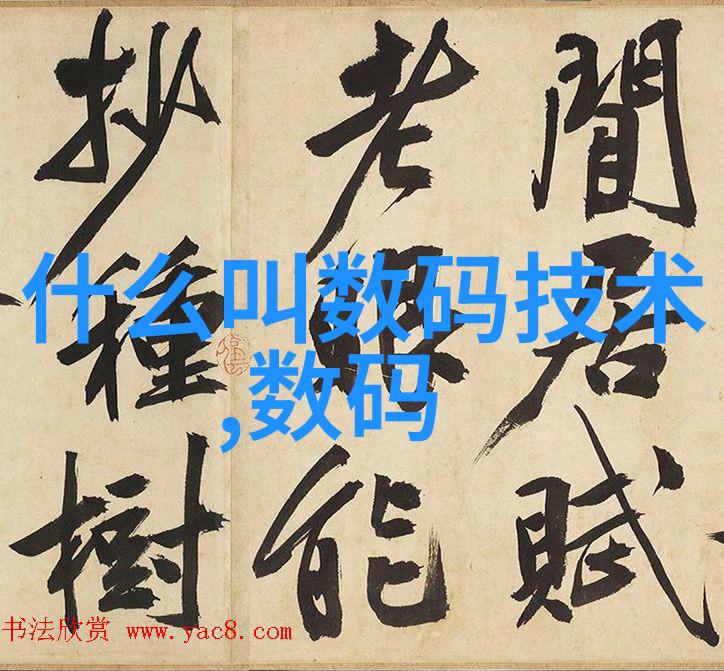 閒居賦
老眼能
抄種樹
什么叫数码技术
,数码
书法欣赏 www.yac8.com